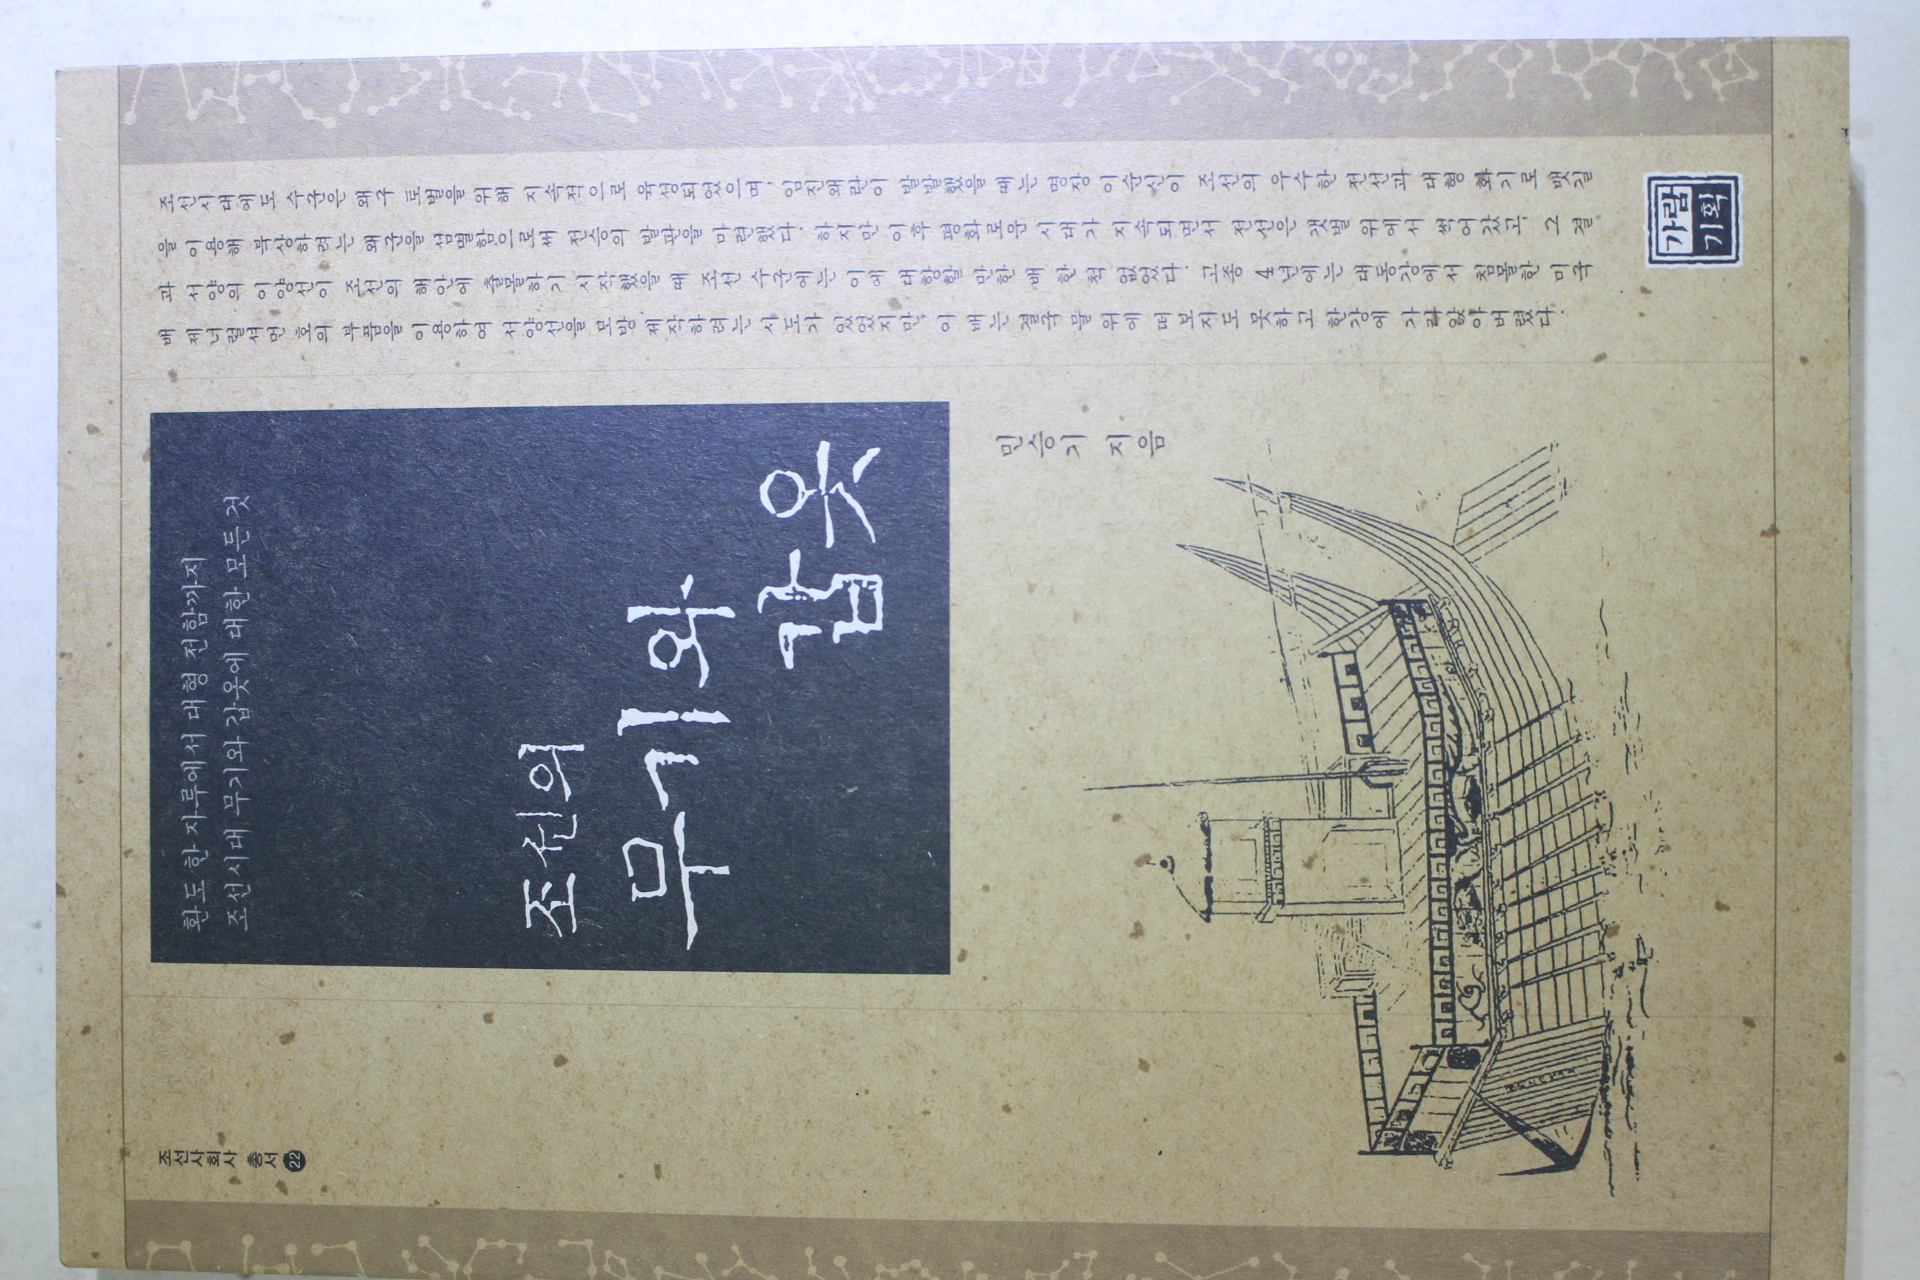 조선사회사 총서 22
환도 한 자루에서 대형 전함까지
조선시대 무기와 갑옷에 대한 모든 것
조선의
무기와
갑옷
민승기 지음
조선시대에도 수군은 왜구 토벌을 위해 지속적으로 육성되었으며, 임진왜란이 발발했을 때는 명장 이순신이 조선의 우수한 전선과 대형 화기로 뱃길
을 이용해 북상하려는 왜군을 섬멸함으로써 전승의 발판을 마련했다. 하지만 이후 평화로운 시대가 지속되면서 전선은 갯벌 위에서 썩어갔고, 그 결
과 서양의 이양선이 조선의 해안에 출몰하기 시작했을 때 조선 수군에는 이에 대항할 만한 배 한 척 없었다. 고종 4년에는 대동강에서 침몰한 미국
배 제너럴셔먼 호의 부품을 이용하여 서양선을 모방 제작하려는 시도가 있었지만, 이 배는 결국 물 위에 떠보지도 못하고 한강에 가라앉아 버렸다.
가람
기획